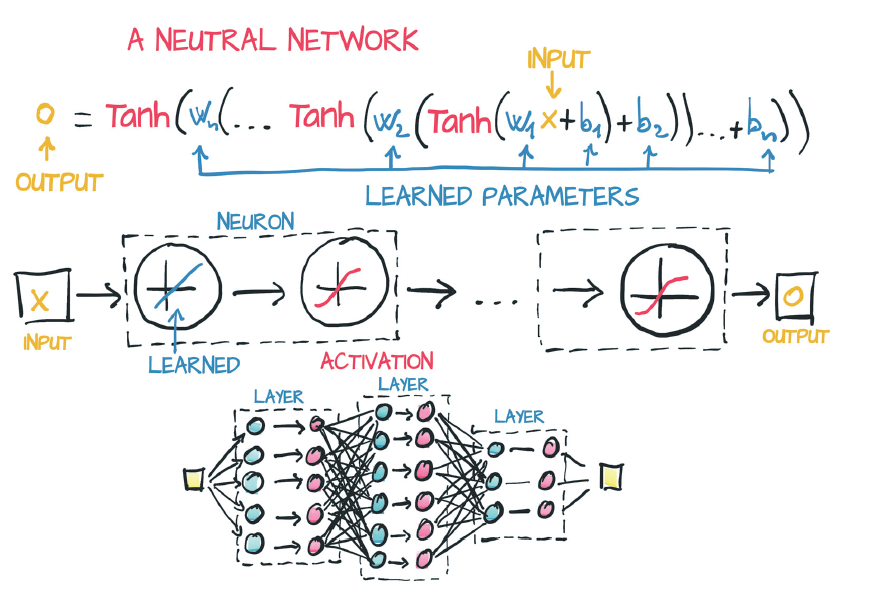 A NEUTRAL NETWORK
INPUT
o = Tanh(wn(... Tanh(w2(Tanh(w1 x+b1)+b2))...+bn))
OUTPUT
LEARNED PARAMETERS
NEURON
x
...
o
INPUT
OUTPUT
LEARNED
ACTIVATION
LAYER
LAYER
LAYER